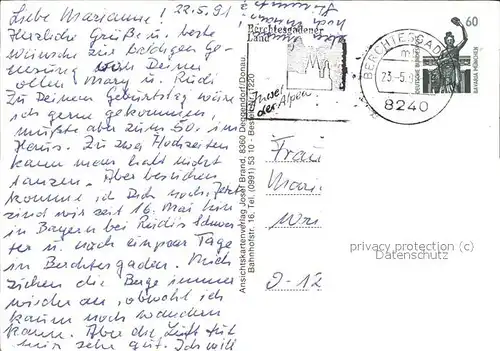 Liebe Marianne! 22.5.91
Herzliche Grüße u. beste
Wünsche zur baldigen Ge-
nesung von Deiner
ollen Mary u. Rudi
Zu Deinem Geburtstag wäre
ich gerne gekommen,
mußte aber zum 50. im
Haus. Zu zwei Hochzeiten
kann man halt nicht
tanzen. Aber besuchen
komme ich Dich noch. Jetzt
sind wir seit 16. Mai hier
in Bayern bei Rudis Schwes-
ter u. noch ein paar Tage
in Berchtesgaden. Mich
ziehen die Berge immer
wieder an, obwohl ich
kaum noch wandern
kann. Aber die Luft tut
mir sehr gut. Ich will
Ansichtskartenverlag Josef Brand, 8360 Deggendorf/Donau
Bahnhofstr. 16, Tel. (0991) 53 10 · Bestell-Nr. 1220
Berchtesgadener
Land
Insel
der Alpen
BERCHTESGADEN
23.-5.
8240
60
DEUTSCHE BUNDESPOST
BAVARIA MÜNCHEN
Frau
Mari
D-12
privacy protection (c)
Datenschutz